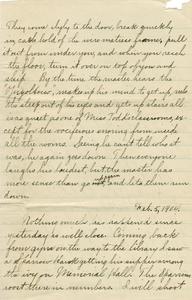 They come slyly to the door, break quickly
in, catch hold of the wire mattress frames, pull
it out from under you, and when you reach
the floor, turn it over on top of you and
skip. By the time the master hears the
, makes up his mind to get up, rubs
the sleep out of his eyes and get up stairs all
is quiet as one of Miss Todd's classrooms, ex-
cept for the vociferous snoring from inside
all the rooms. Seeing he can't tell who it
was, he again goes down. Then everyone
laughs his loudest, but the master has
more sense than go up again and lets them run
down.
Feb. 5, 1900.
Nothing much is
yesterday as well close. Coming back
from gym on the way to the library I saw
a sparrow hawk getting his supper among
the ivy on Memorial Hall. The sparrows
roost there in numbers. I will shoot